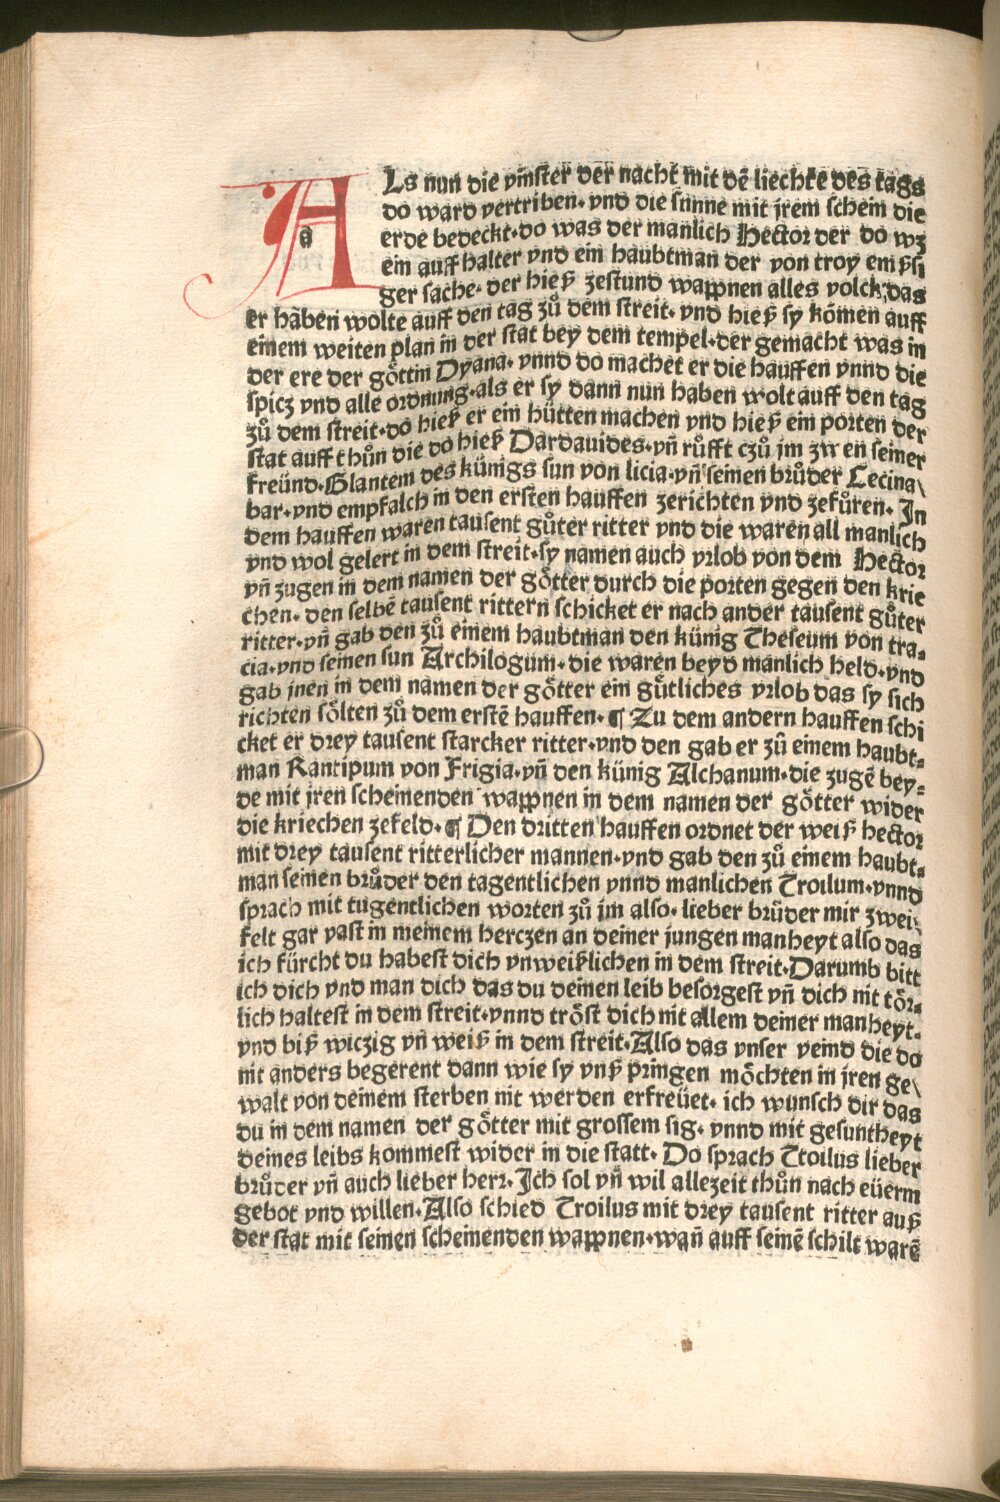 ALs nun die vinster der nacht mit dē liechte des tags
do ward vertriben· vnd die sunne mit jrem schein die
erde bedeckt·do was der manlich Hector der do wz
ein auff halter vnd ein haubtman der von troy empßi
ger sache· der hieß zestund wappnen alles volck,das
er haben wolte auff den tag zů dem streit· vnd hieß sy komen auff
einem weiten plan in der stat bey dem tempel·der gemacht was in
der ere der göttin Dyana· vnnd do machet er die hauffen vnnd die
spicz vnd alle ordnung·als er sy dann nun haben wolt auff den tag
zů dem streit·do hieß er ein hütten machen vnd hieß ein porten der
stat auff thůn die do hieß Dardauides·vn̄ růfft czů jm zwen seiner
freünd·Glantem des künigs sun von licia·vn̄ seinen brůder Cecina\
bar·vnd empfalch in den ersten hauffen zerichten vnd zefůren· In
dem hauffen waren tausent gůter ritter vnd die waren all manlich
vnd wol gelert in dem streit·sy namen auch vrlob von dem Hector
vn̄ zugen in dem namen der götter durch die porten gegen den krie
chen· den selbē tausent rittern schicket er nach ander tausent gůter
ritter·vn̄ gab den zů einem haubtman den künig Theseum von tra⸗
cia·vnd seinen sun Archilogum·die waren beyd manlich held·vnd
gab jnen in dem namen der götter ein gůtliches vrlob das sy sich
richten sölten zů dem erstē hauffen·¶ Zu dem andern hauffen schi
cket er drey tausent starcker ritter·vnd den gab er zů einem haubt⸗
man Xantipum von Frigia·vn̄ den künig Alchanum·die zugē bey⸗
de mit jren scheinenden wappnen in dem namen der götter wider
die kriechen zefeld·¶ Den dritten hauffen ordnet der weiß hector
mit drey tausent ritterlicher mannen·vnd gab den zů einem haubt⸗
man seinen brůder den tagentlichen vnnd manlichen Troilum·vnnd
sprach mit tugentlichen worten zů im also· lieber brůder mir zwei\
felt gar vast in meinem herczen an deiner jungen manheyt also das
ich fürcht du habest dich vnweißlichen in dem streit·Darumb bitt
ich dich vnd man dich das du deinen leib besorgest vn̄ dich nit tör⸗
lich haltest in dem streit·vnnd tröst dich nit allem deiner manheyt·
vnd biß wiczig vn̄ weiß in dem streit·Also das vnser veind die do
nit anders begerent dann wie sy vnß pringen möchten in jren ge\
walt von deinem sterben nit werden erfreüet· ich wunsch dir das
du in dem namen der götter mit grossem sig· vnnd mit gesuntheyt
deines leibs kommest wider in die statt· Do sprach Ttoilus lieber
brůder vn̄ auch lieber herr· Ich sol vn̄ wil allezeit thůn nach eüerm
gebot vnd willen·Also schied Troilus mit drey tausent ritter auß
der stat mit seinen scheinenden wappnen·wan̄ auff seinē schilt warē